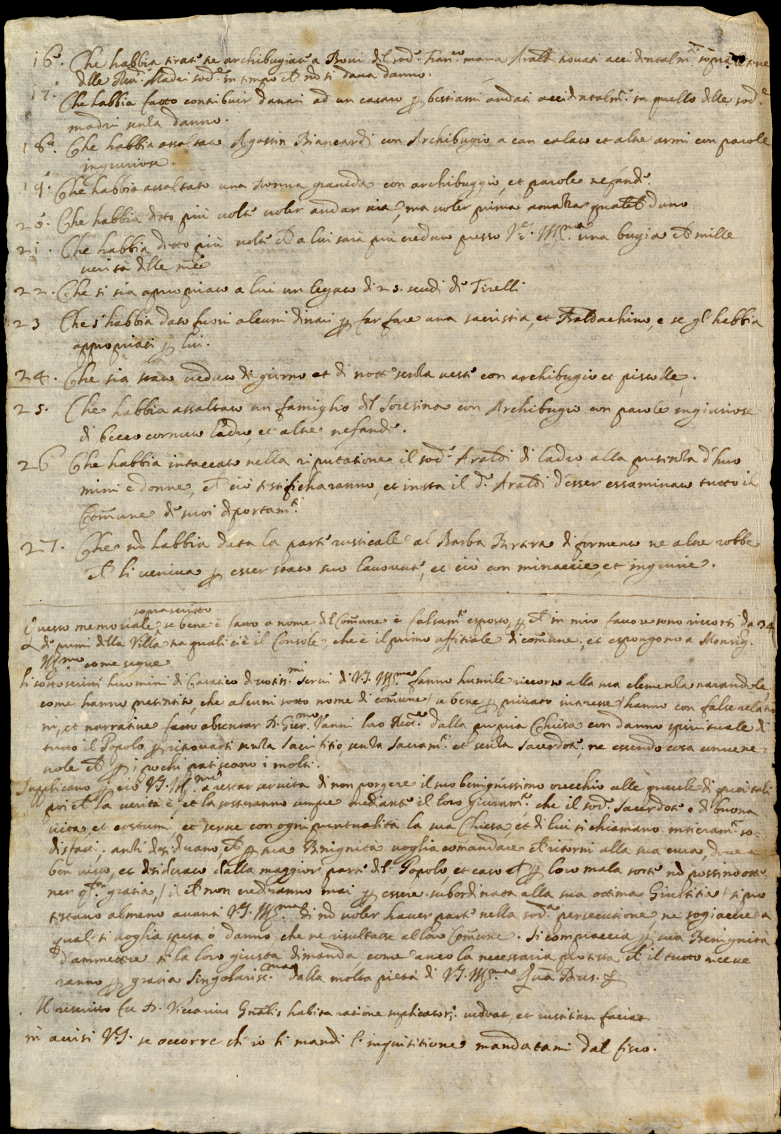 16.° Che habbia tirat' tre archibugiati a Bovi del sod.° Fran.co maria Arald' trovati accidentalm.te sopra
delle Rev. Madri sod.e in tempo che nō si dava danno.
17. Che habbia fatto contribuir danari ad un casaro p bestiami andati accidentalm.te in quello delle sod.e
madri senza danno.
18.° Che habbia assaltato Agostin Biancardi con Archibugio a can calato et altre armi con parole
ingiuriose.
19.° Che habbia assaltato una donna gravida con archibuggio, et parole nefand'.
20.° Che habbia detto più volte voler andar via, ma voler prima amazzar quatt'
21. Che habbia detto più volte ch'a lui sarà più creduto presso V.S. Ill.ma una bugia che mille
verità delle
22. Che si sia apropriato a lui un legato di 25. scudi di Tirelli
23 Che s'habbia dato fuori alcuni dinari p far fare una sacristia, et Baldachino, e se gl' habbia
appropriati p lui.
24. Che sia stato veduto di giorno et di notte senza veste con archibugio et pistolle.
25. Che habbia assaltato un famiglio del Soresina con Archibugio con parole ingiuriose
di becco cornuto ladro et altre nefand'.
26 Che habbia intaccato nella riputatione il sod.° Araldi di ladro alla presenza d'huo
mini e donne, che ciò testificharanno, et insta il d.° Araldi d'esser essaminato tutto il
Comūne di suoi deportam.ti
27. Che nō habbia data la parte rusticale al Barba di formento ne altre robbe
che li veniva p esser stato suo lavorente, et ciò con minaccie, et ingiurie.
soprascritto
Questo memoriale se bene è fatto a nome del Comūne è falsam.te esposto, p che in mio favore sono ricorsi da 34
de primi della Villa tra quali c'è il Console, che è il primo uffitiale di comūne, et espongono a Monsig.r
Ill.mo come segue
Li sottoscritti huomini di Casatico devotiss.mi servi di V.S. Ill.ma fanno humile ricorso alla sua clemenza narandole
come hanno presentito, che alcuni sotto nome di comūne se bene p privato interesse hanno con false relatio
ni, et narrative fatto absentar D. Gier.mo Vanni loro Rett.re dalla propria Chiesa con danno spirituale di
tutto il Popolo p ritrovarsi senza Sacrifitio, senza Sacram.ti et senza Sacerdote, ne essendo cosa conve
vole che p i pochi patiscono i molti.
Supplicano p ciò V.S. Ill.ma a restar servita di non porgere il suo benignissimo orecchio alle querele di questi tali
poi che la verità è, et la sosteranno sempre mediante il loro Giuram.to che il sod.° Sacerdote è di buona
vita, et costumi, et serve con ogni pontualità la sua Chiesa et di lui si chiamano intieram.te so
disfatti, anzi desiderano, che p sua Benignità voglia comandare che ritorni alla sua cura, dove è
ben visto, et desiderato dalla maggior parte del Popolo, et caso che p loro mala sorte nō possino otte
ner q.ta gratia, (il che non crederanno mai p essere subordinata alla sua ottima Giustitia) si pro
testano almeno avanti V.S. Ill.ma di nō voler haver parte nella sod.a persecutione ne sogiacere a
qual si voglia spesa ò danno, che ne risultasse al loro Comūne. Si compiaccia p sua Benignità
d'ammettere si la loro giusta dimanda come anco la necessaria protesta che il tutto riceve
ranno p gratia singolariss.ma dalla molta pietà di V.S. Ill.ma Quā Deus.
Il rescritto Ill. D. Vicarius Gn̄alis habita ratione suplicator. videat, et iustitiam faciat
m'avisi V.S. se occorre ch'io li mandi l'inquisitione mandatami dal fisco.